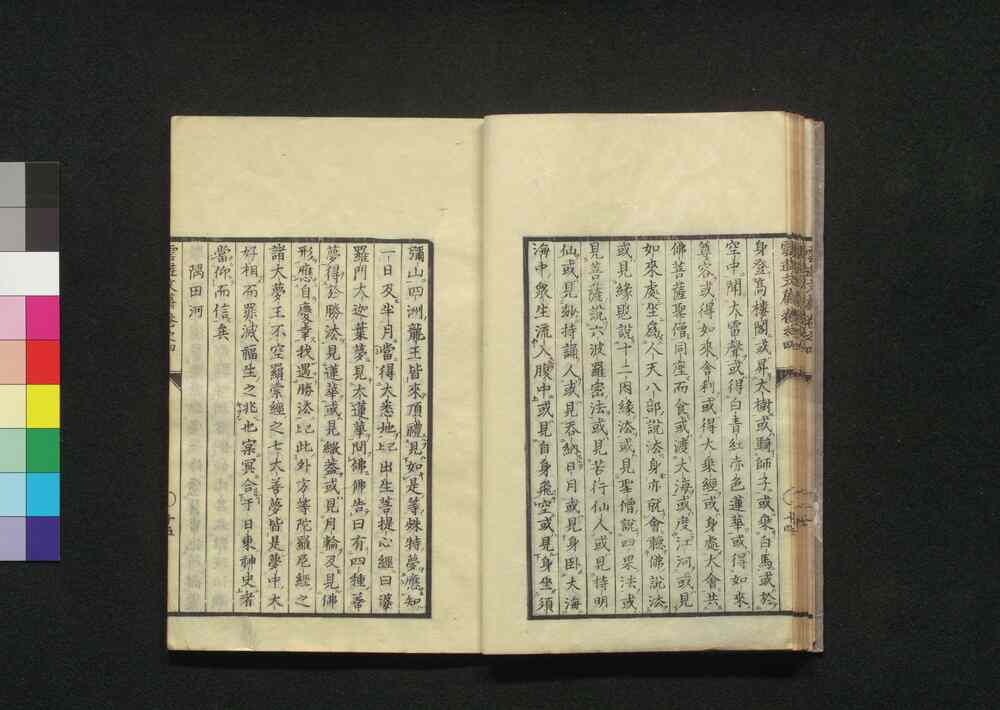 身登高樓閣或昇大樹或騎師子或乘白馬或於
空中聞大雷聲或得白青紅赤色蓮華或得如來
尊容或得如來舍利或得大乘經或身處大會共
佛菩薩聖僧同座而食或渡大海或度江河或見
如來處坐爲人天八部說法身亦就會聽佛說法
或見緣覺說十二因緣法或見聖僧說四果法或
見菩薩說六波羅密法或見苦行仙人或見持明
仙或見妙持誦人或見吞納日月或見身臥大海
海中衆生流入腹中或見自身飛空或見身坐須
彌山四洲龍王皆來頂禮見如是等殊特夢應知
一日及半月當得大悉地已上出生菩提心經曰婆
羅門大迦葉夢見大蓮華問佛佛告曰有四種善
夢得於勝法見蓮華或見繖蓋或見月輪及見佛
形應自慶幸我遇勝法已上此外方等陀羅尼經之
諸大夢王不空羂索經之七大善夢皆是夢中大
好相而罪滅福生之兆也冥合于日東神史者
當仰而信矣
隅田河
雲遊文蒭卷之四
十五